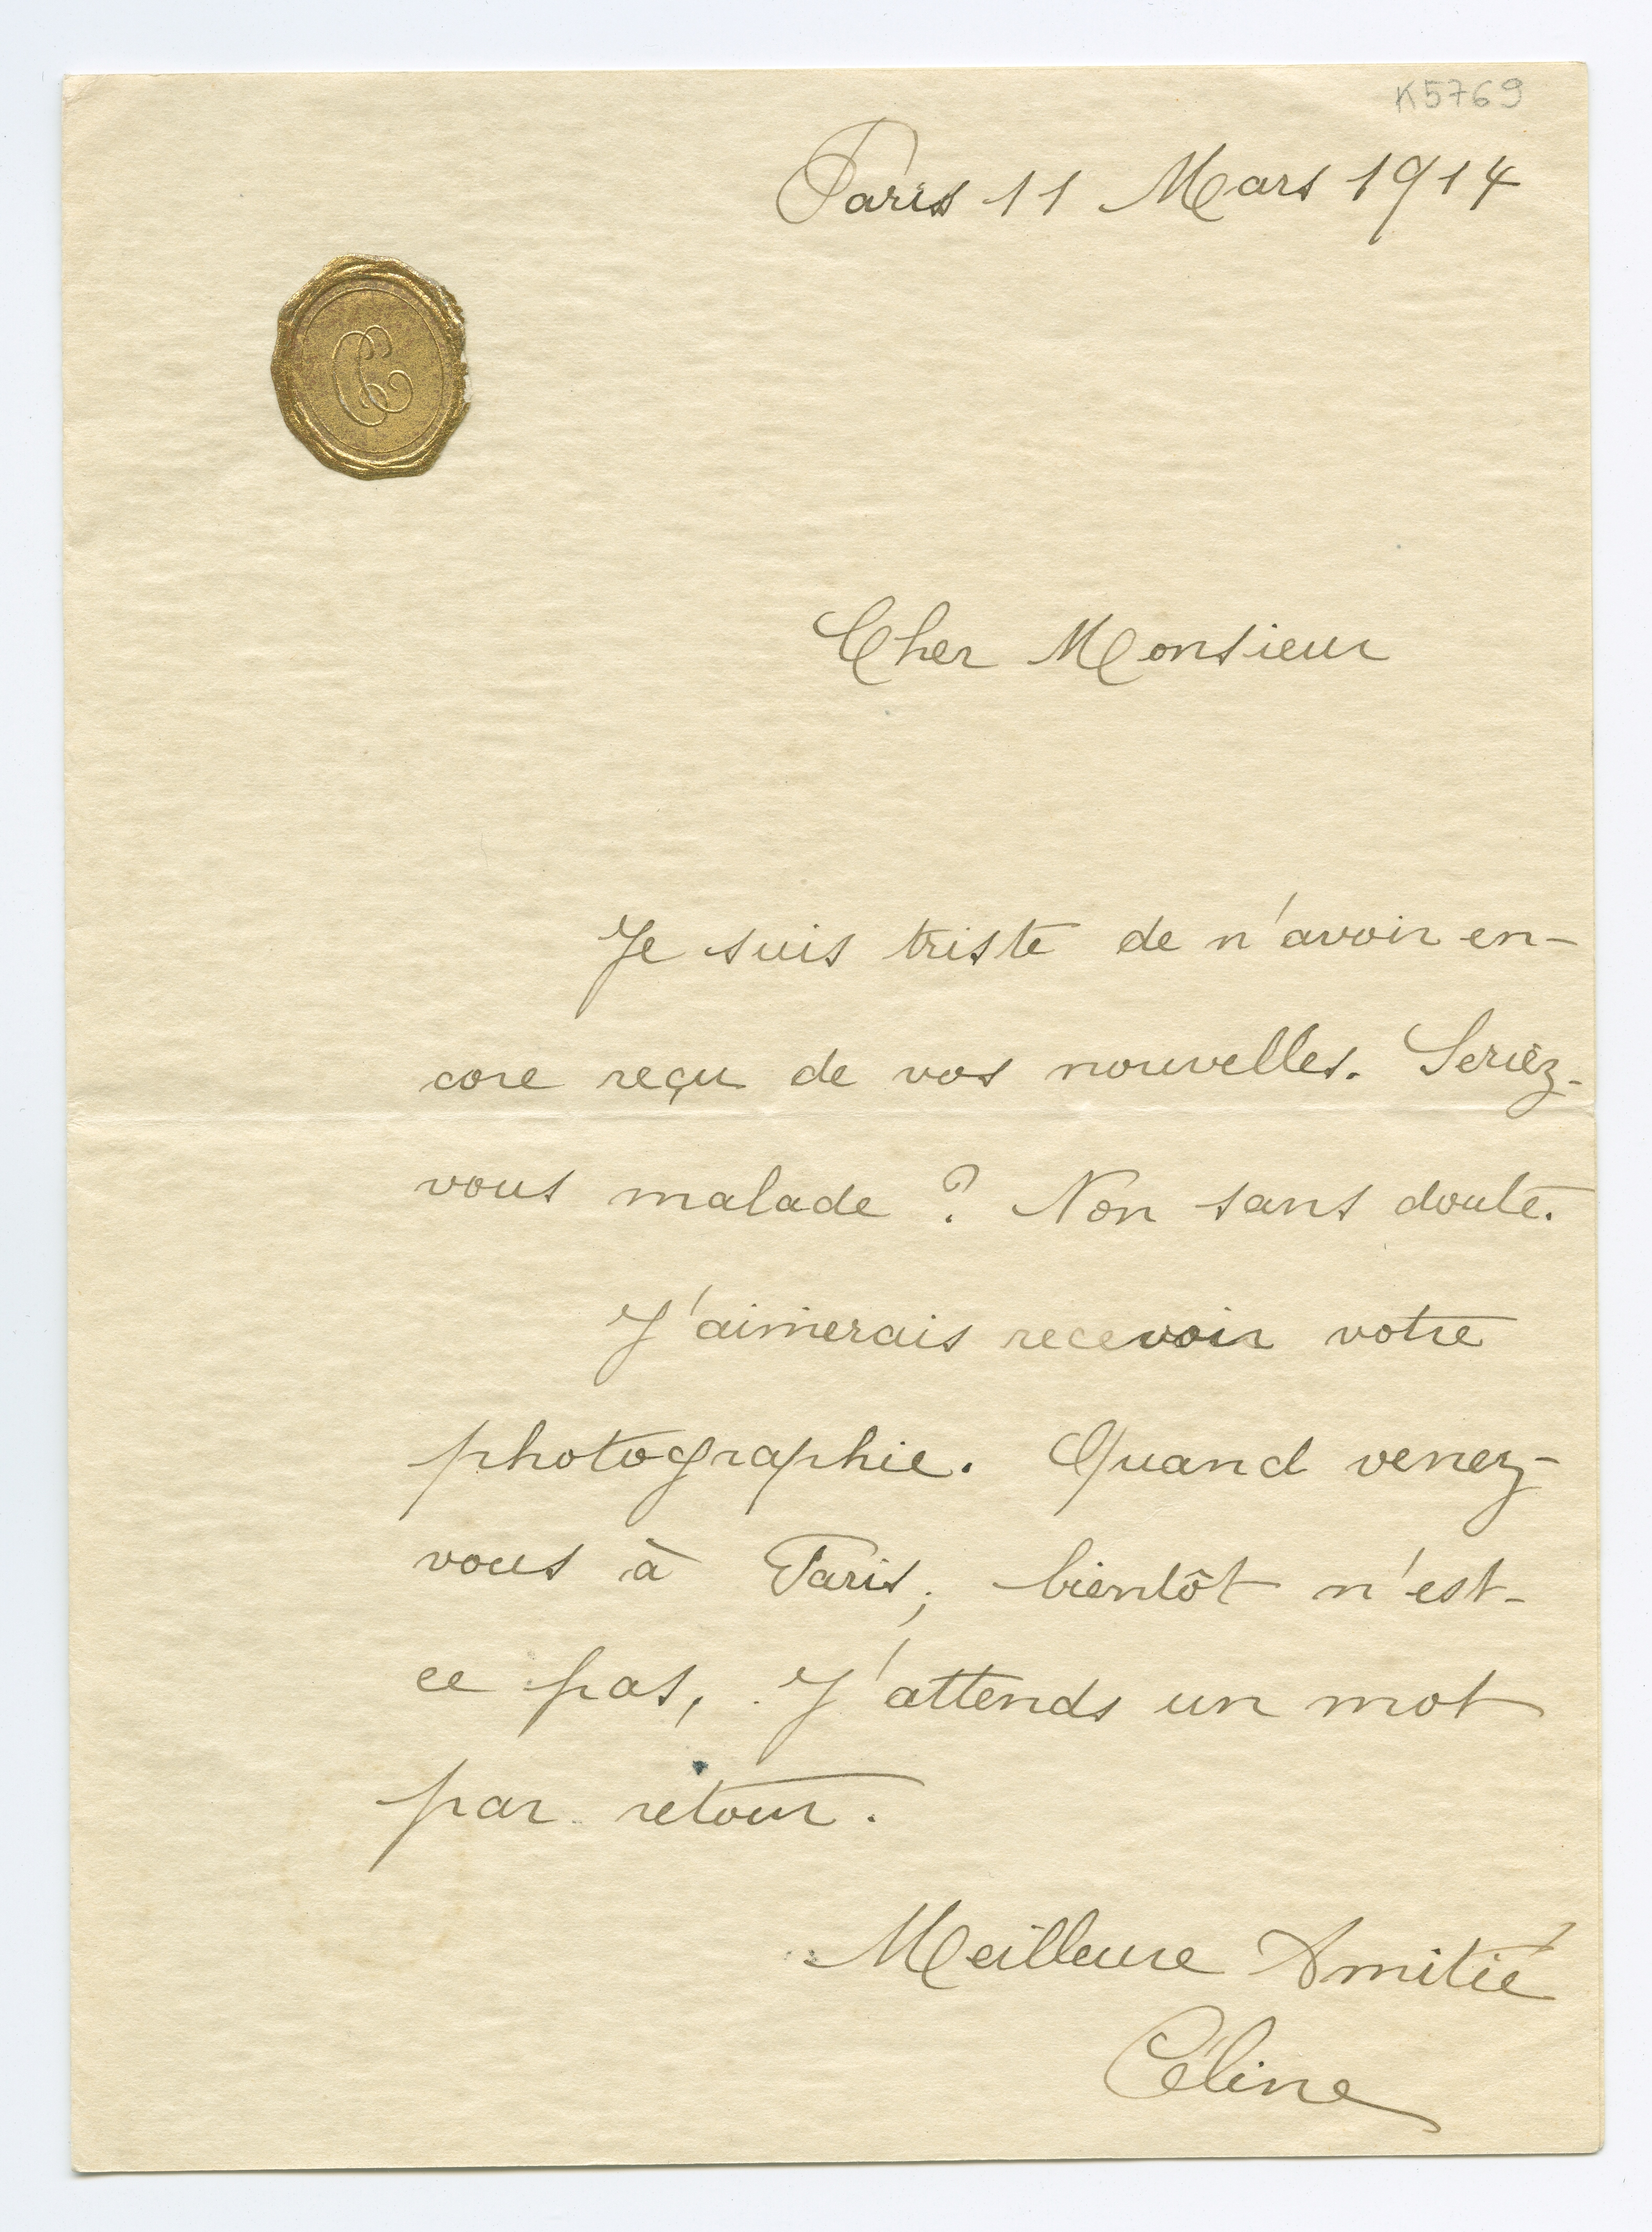 K5769
Paris 11 Mars 1914
Cher Monsieur
Je suis triste de n'avoir en-
core reçu de vos nouvelles. Seriez-
vous malade ? Non sans doute.
J'aimerais recevoir votre
photographie. Quand venez-
vous à Paris; bientôt n'est-
ce pas, J'attends un mot
par retour.
Meilleure Amitié
Céline